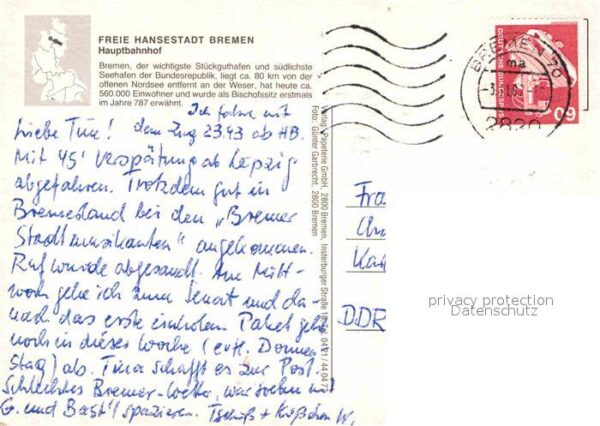 FREIE HANSESTADT BREMEN
Hauptbahnhof
Bremen, der wichtigste Stückguthafen und südlichste
Seehafen der Bundesrepublik, liegt ca. 80 km von der
offenen Nordsee entfernt an der Weser, hat heute ca.
560.000 Einwohner und wurde als Bischofssitz erstmals
im Jahre 787 erwähnt.
Ich fahre mit
Liebe Tine! dem Zug 23.43 ab HB.
Mit 45' Verspätung ab Leipzig
abgefahren. Trotzdem gut in
Bremesland bei den "Bremer
Stadtmusikanten" angekommen.
Ruf wurde abgesandt. Am Mitt-
woch gehe ich zum Senat und da-
nach das erste einholen. Paket geht
noch in dieses Woche (evtl. Donners
tag) ab. Tina schafft es zur Post.
Schlechtes Bremer-Wetter, war soeben mit
G. und Basti spazieren. Tschüß + W.
Verlag: Papeterie GmbH, 2800 Bremen, Insterburger Straße 16, Tel. 04 21 / 44 04 7
Foto: Günter Garbrecht, 2800 Bremen
BREMEN
ma
2820
DEUTSCHE BUNDESPOST
60
Fra
DDR
privacy protection
Datenschutz